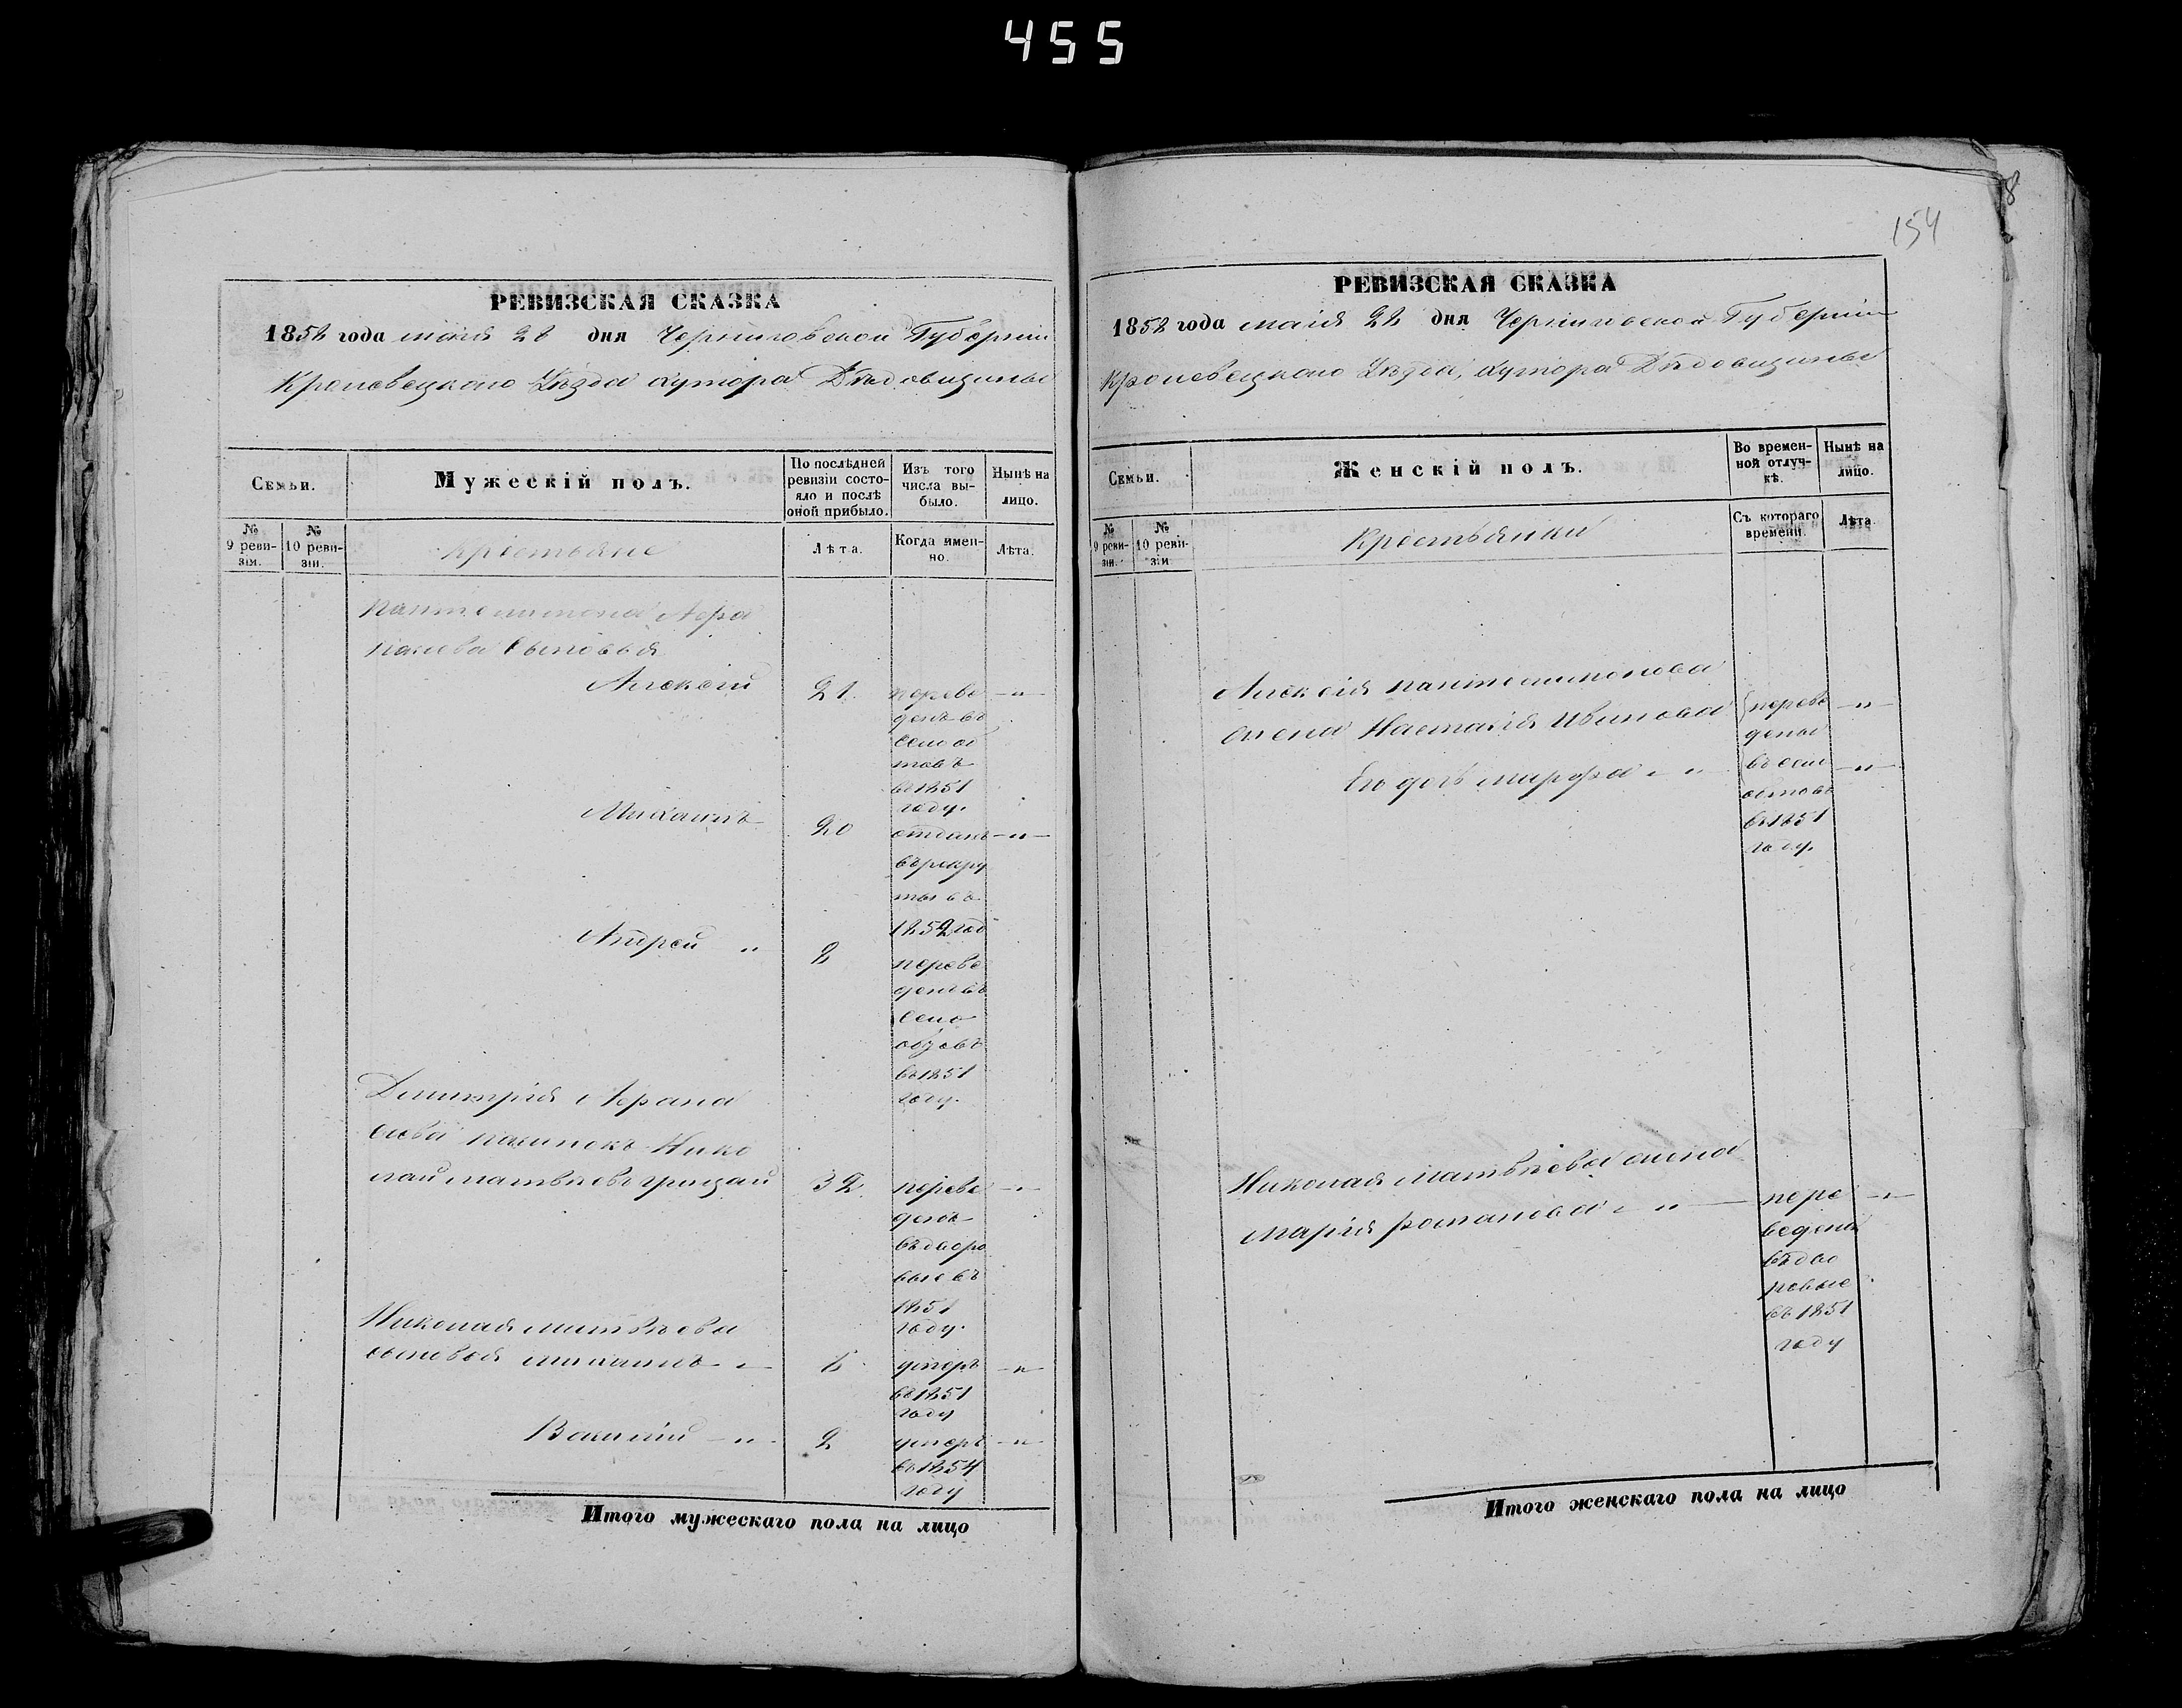 455
154
8
РЕВИЗСКАЯ СКАЗКА
1858 года маія 28 дня Черниговской Губерніи
Кролевецкаго Уѣзда хутора Дѣдовщины
Семьи.
Мужескій полъ.
По послѣдней ревизіи состояло и послѣ оной прибыло.
Изъ того числа выбыло.
Нынѣ на лицо.
№ 9 ревизіи.
№ 10 ревизіи.
Крестьяне
Лѣта.
Когда именно.
Лѣта.
Пантелимона Афа
насьева сыновья
Алексѣй 21. переве -"-
денъ въ
село
въ 1851
году.
Михаилъ 20 отданъ -"-
въ рекру
ты въ
1852 год
Андрей " 8 переве
денъ въ
село
въ 1851
году.
Димитрія Афана
сіева Нико
лай Матвѣевъ Грицай 32. переве -"-
денъ
въ дворо
вые въ
1851
году.
Николая Матвѣева
сыновья Михаилъ " 8 умеръ -"-
въ 1851
году
Василій -"- 2 умеръ -"-
въ 1854
году
Итого мужескаго пола на лицо
РЕВИЗСКАЯ СКАЗКА
1858 года маія 28 дня Черниговской Губерніи
Кролевецкаго Уѣзда, хутора Дѣдовщины
Семьи.
Женскій полъ.
Во временной отлучкѣ.
Нынѣ на лицо.
№ 9 ревизіи.
№ 10 ревизіи
Крестьянки
Съ котораго времени.
Лѣта.
Алексѣя Пантелимонова
жена Настасія Иванова переве -"-
дены
Его дочь Марфа " " въ село -"-
въ 1851
году.
Николая Матвѣева жена
Марія Романова " " пере -"-
ведена
въ дво
ровые
въ 1851
году
Итого женскаго пола на лицо